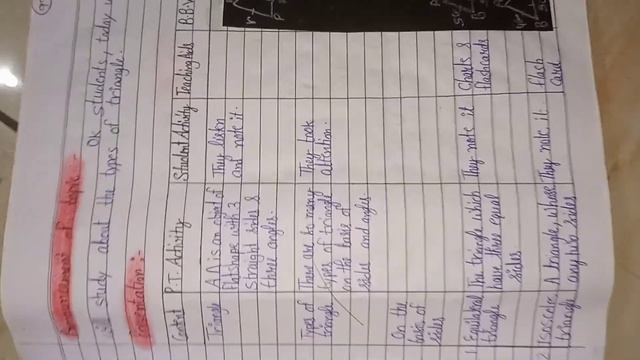 Announcement of topic :-
Ok students, today w
ill study about the types of triangle.
Presentation :-
Content P.T. Activity Student Activity Teaching Aids B.B.W
Triangle A Δ is an object of They listen
flat shape with 3 and note it.
straight sides &
three angles.
Types of There are be many They took
triangle types of triangle attention.
on the basis of
sides and angles.
On the
basis of
sides
1. Equilateral The triangle which They note it Charts &
triangle have three equal flashcards
sides
Isosceles A triangle, whose They note it. Flash
triangle any two sides card